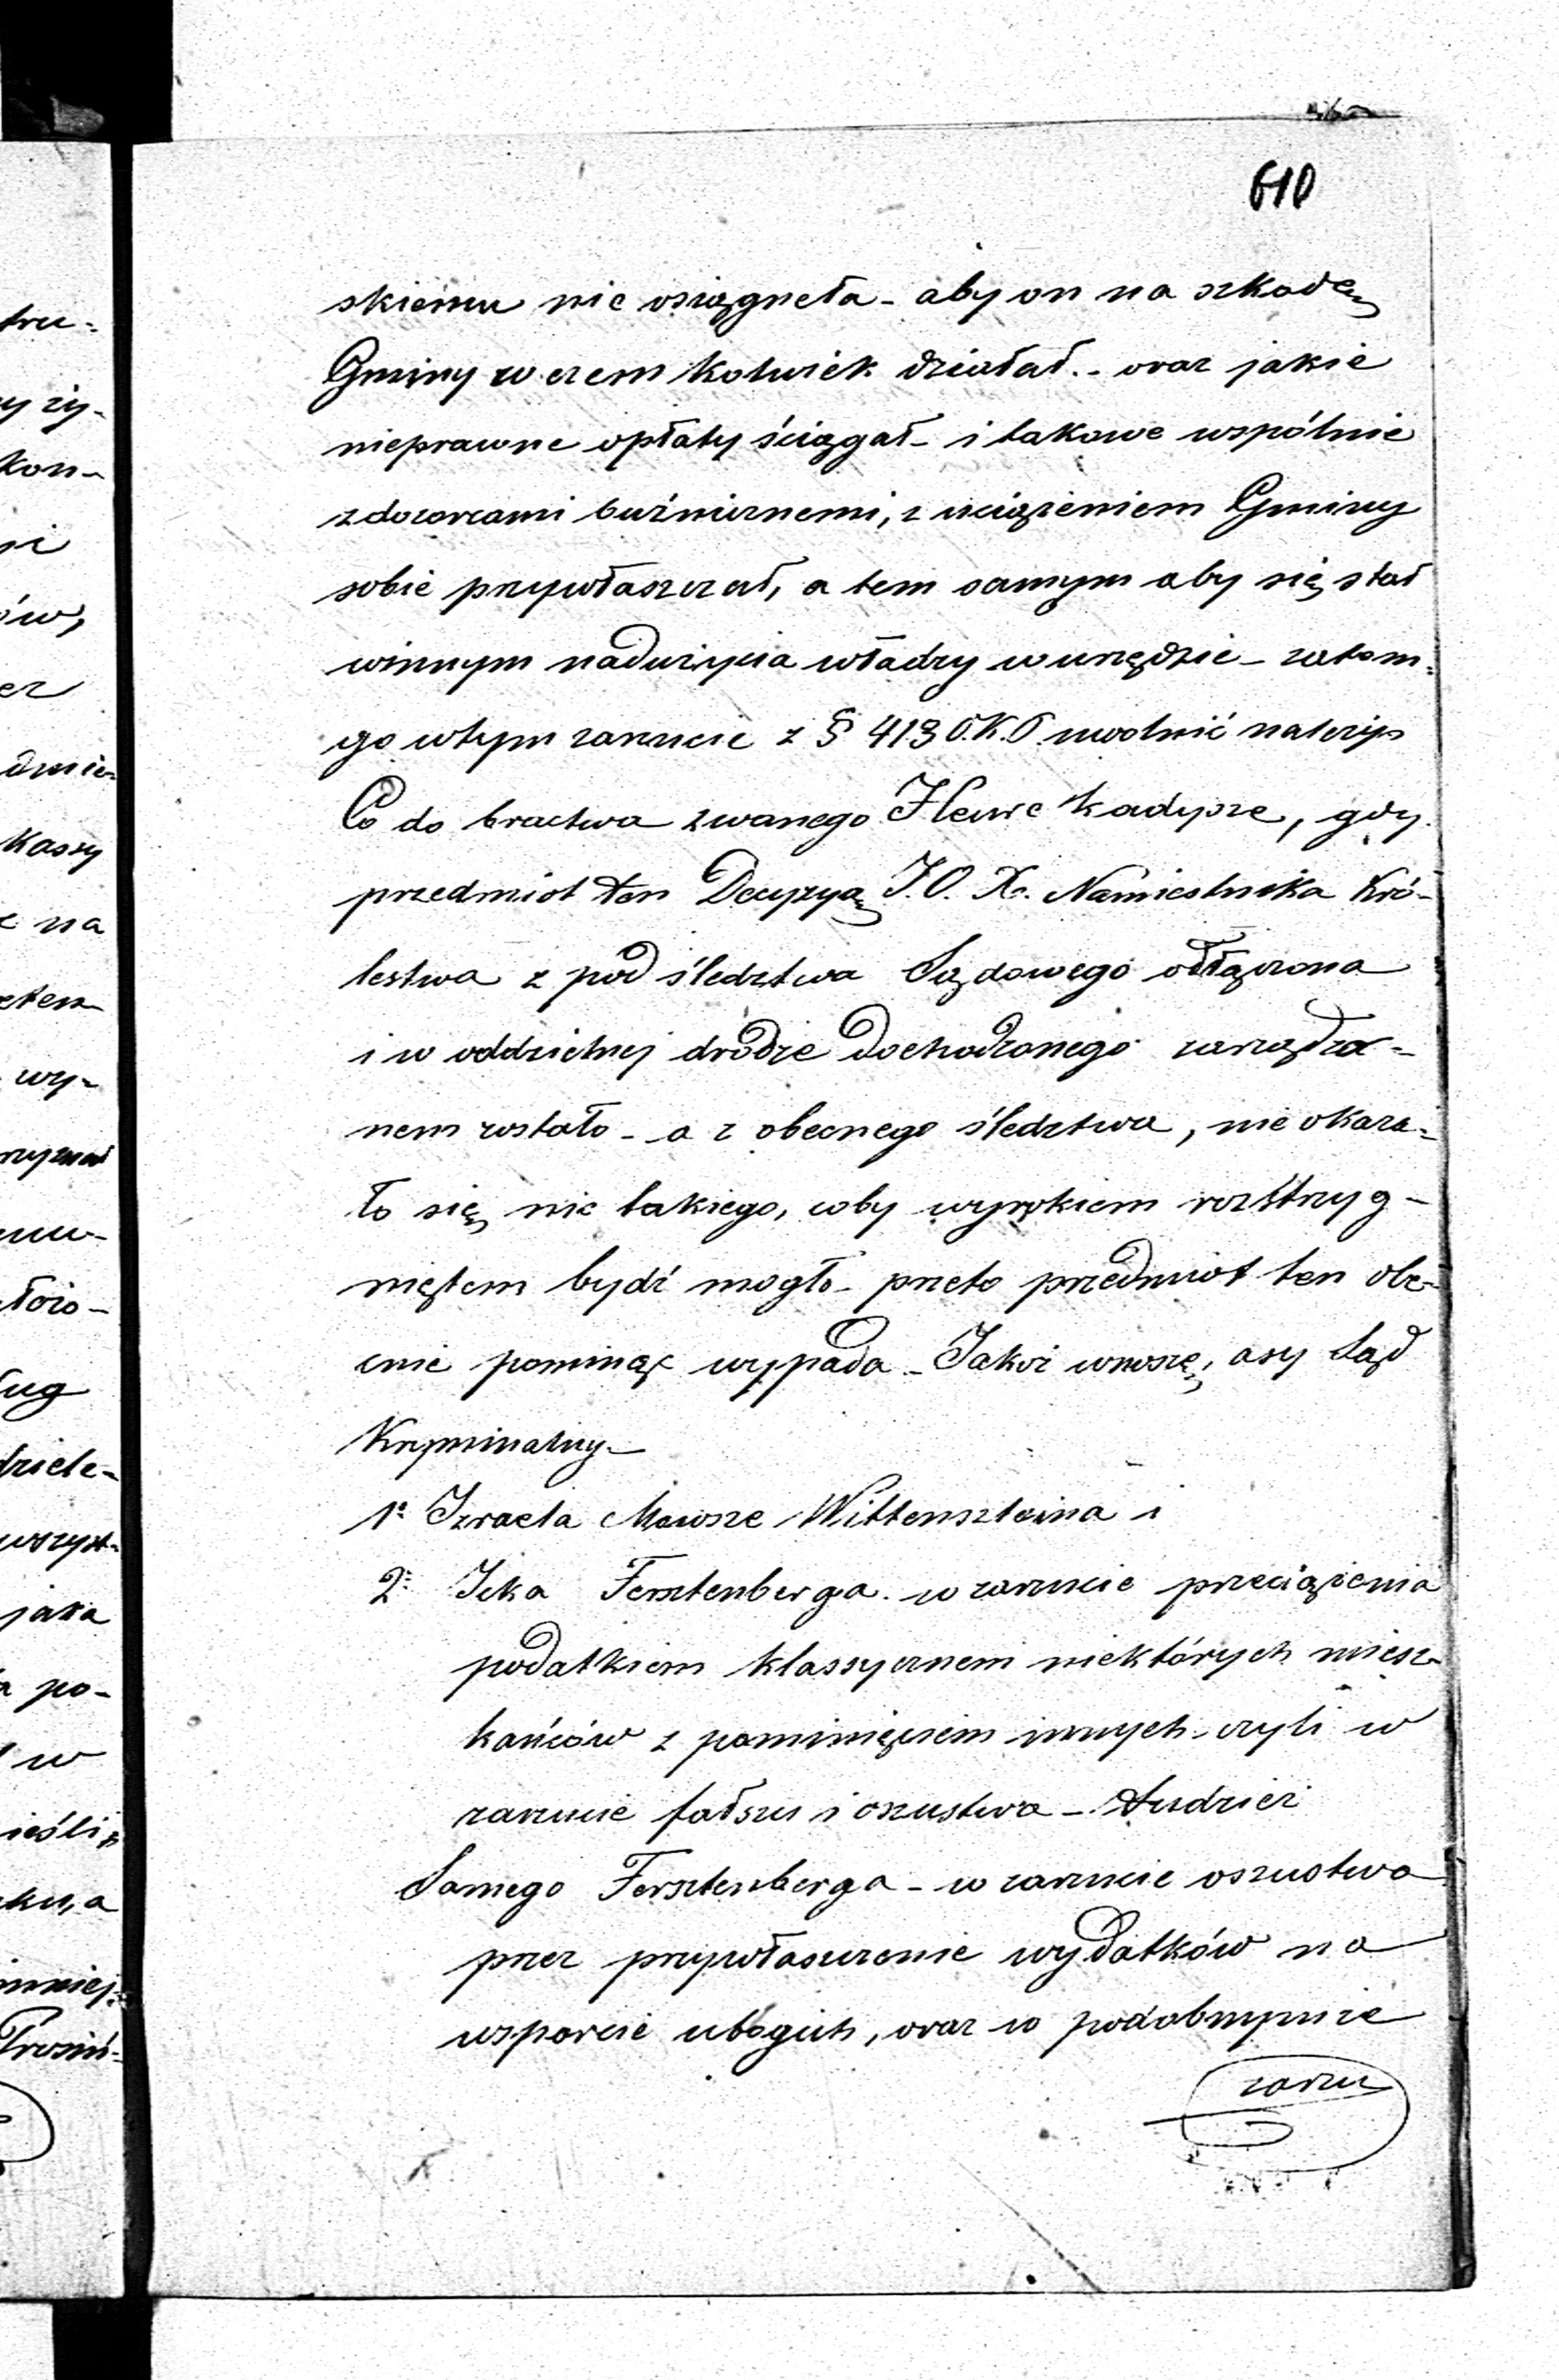 610
skiemu nie osiągneła - aby on na szkodę
Gminy w czem kolwiek działał. - oraz jakie
nieprawne opłaty ściągał - i takowe wspólnie
z dozorcami buźnicznemi, z uciążeniem Gminy
sobie przywłaszczał, a tem samym aby się stał
winnym nadużycia władzy w urzędzie - zatem
go w tym zarzucie z § 413 O.K.P. uwolnić należy
Co do bractwa zwanego Hewre Kadysze, gdy
przedmiot ten Decyzyą J.O. X. Namiestnika Kró-
lestwa z pod śledztwa Sądowego odłączona
i w oddzielnej drodze dochodzonego zarządzo-
nem zostało - a z obecnego śledztwa, nie okaza-
ło się nic takiego, coby wyrokiem rozstrzyg-
niętem bydź mogło - przeto przedmiot ten obe-
cnie pominąć wypada - Jakoż wnoszę, asy Sąd
Kryminalny -
1º Izraela Mowsze Wittenszteina i
2º Icka Fersztenberga. w zarzucie przeciążenia
podatkiem klassycznem niektórych miesz-
kańców z pominięciem innych - czyli w
zarzucie fałszu i oszustwa - Tudzież
Samego Fersztenberga - w zarzucie oszustwa
przez przywłaszczenie wydatków na
wsparcie ubogich, oraz w podobnymże
zarzu
tru-
y ży-
kon-
ni
ów,
er
dmie-
Kassy
e na
wy-
ług
dziele-
wszyst-
jaka
po-
w
ieśli